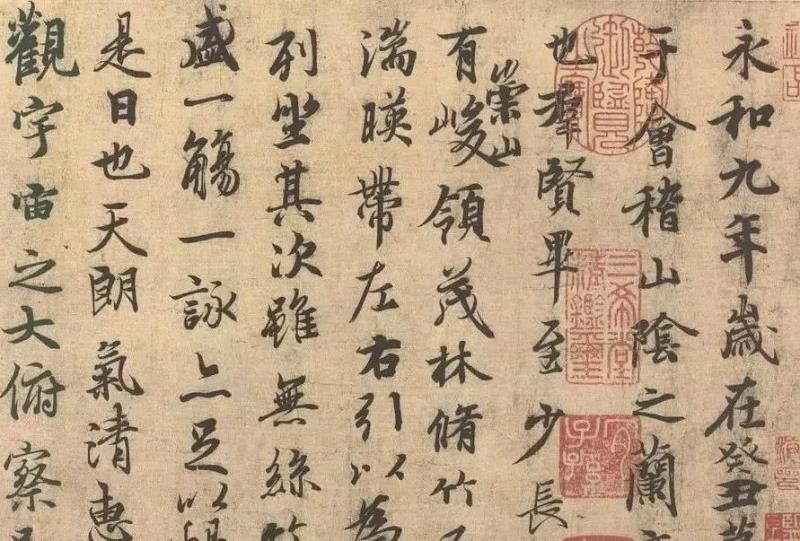 永和九年歲在癸丑
于會稽山陰之蘭
也羣賢畢至少長
有崇山峻領茂林脩竹
湍暎帶左右引以為
列坐其次雖無絲竹
盛一觴一詠亦足以
是日也天朗氣清惠
觀宇宙之大俯察
乾隆御覽之寶
三希堂精鑑璽
宜子孫